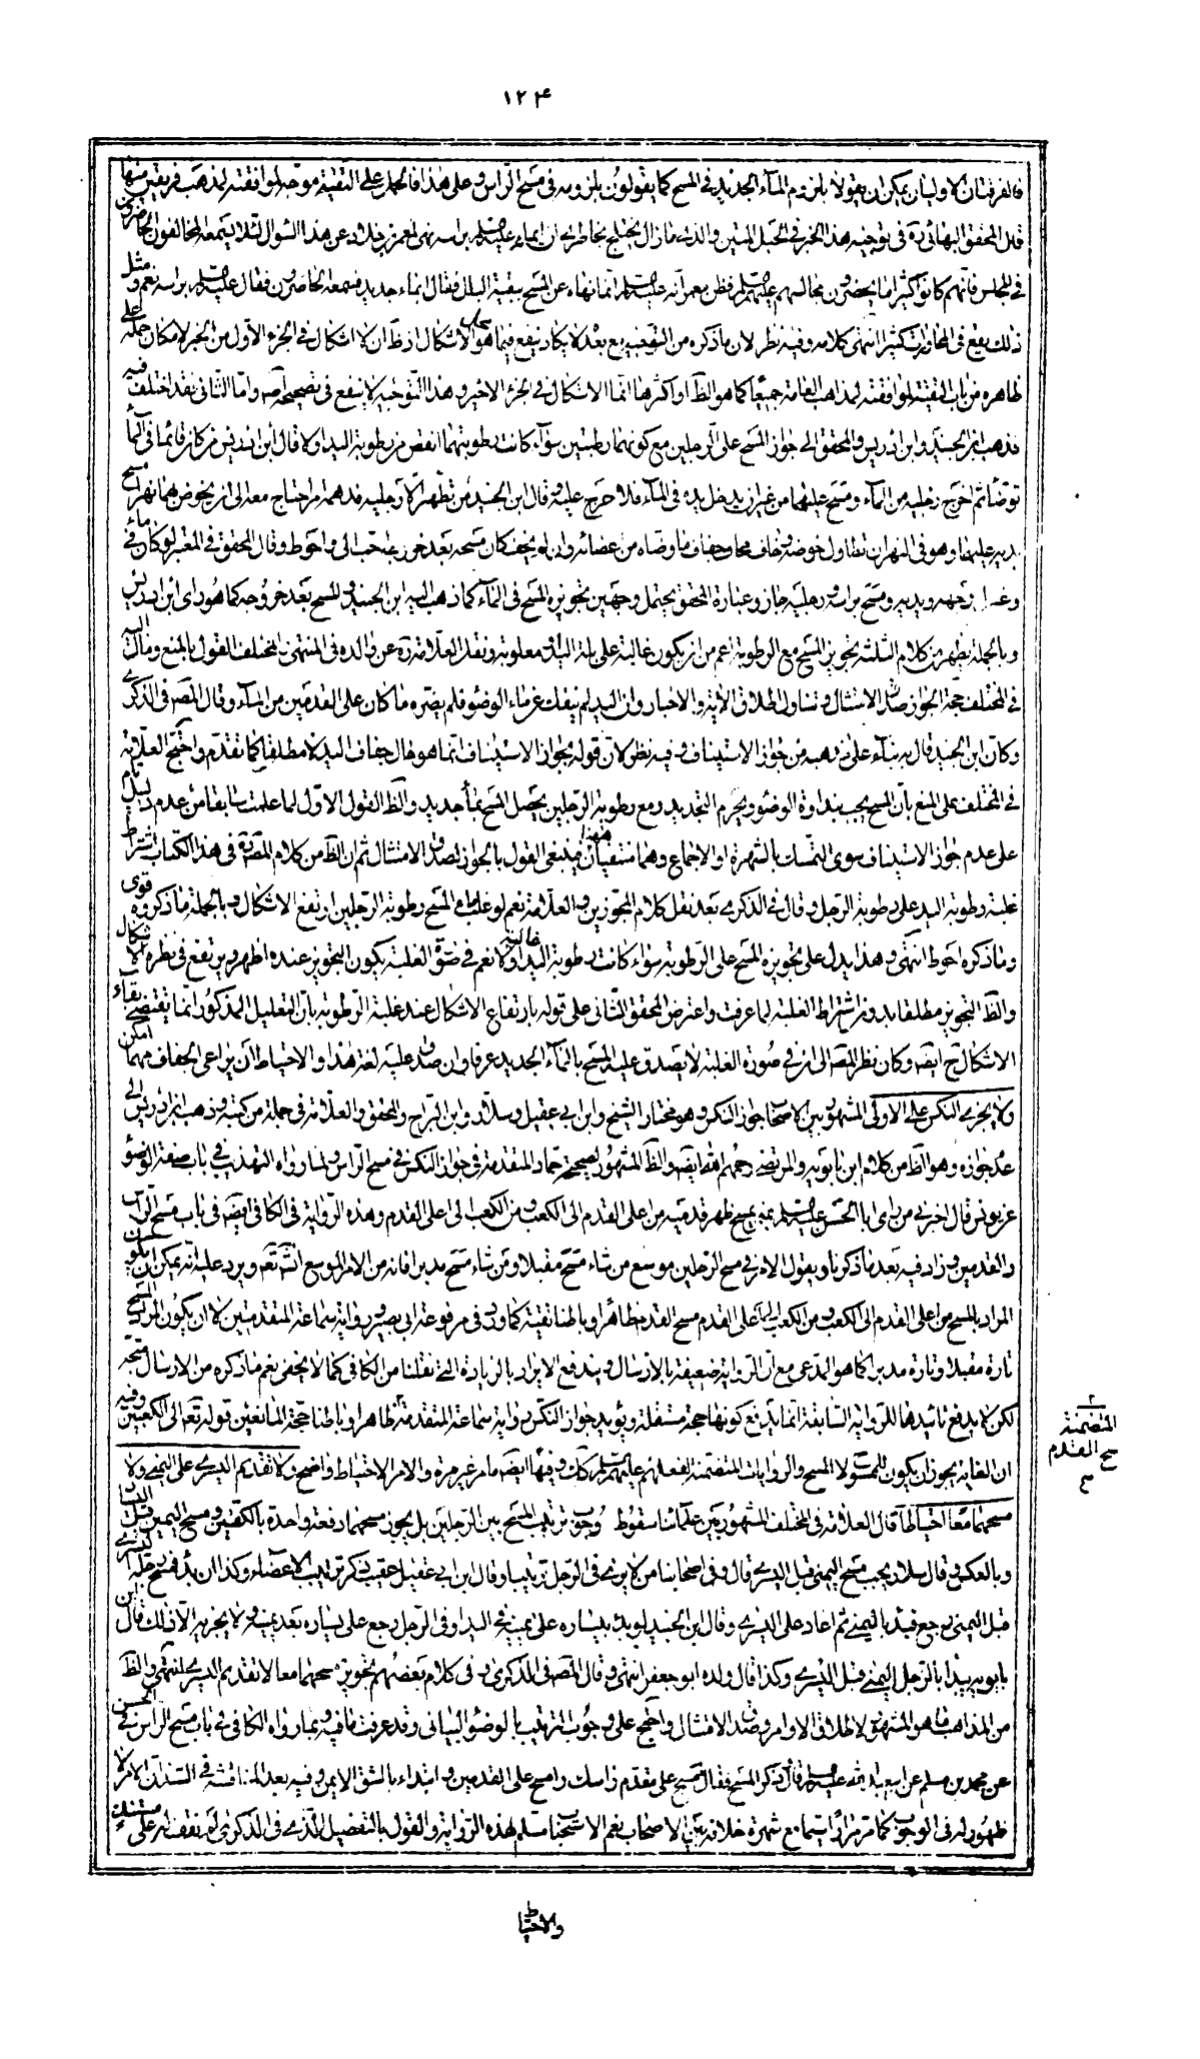 ١٢٤
فالفرقتان الاوليان يمكن ان يقولا بلزوم المآء الجديد في المسح كما يقولون بلزومه في مسح الراس وعلى هذا فالحمل على التقية موجه لموافقته لمذهب فريقين منها
قال المحقق البهائي ره في توجيه هذا الخبر في الحبل المتين والذي ما زال يختلج بخاطري ان ايماءه عليه السلم براسه نهي لمعمر بن خلاد عن هذا السؤال لئلا يسمعه المخالفون الحاضرون
في المجلس فانهم كانوا كثيرا ما يحضرون مجالسهم عليهم السلم فظن معمر انه عليه السلم انما نهاه عن المسح ببقية البلل فقال ابماء جديد فسمعه الحاضرون فقال عليه السلم براسه نعم ومثل
ذلك يقع في المحاورات كثيرا انتهى كلامه وفيه نظر لان ما ذكره من التوجيه مع بعده لا يكاد ينفع فيما هو محل الاشكال اذ ظ ان لا اشكال في الجزء الاول من الخبر لامكان حمله على
ظاهره من باب التقية لموافقته لمذاهب العامة جميعا كما هو الظ او اكثرها انما الاشكال في الجزء الاخير وهذا التوجيه لا ينفع في تصحيحه اصلا واما الثاني فقد اختلف فيه
فذهب ابن الجنيد وابن ادريس والمحقق الى جواز المسح على الرجلين مع كونهما رطبتين سوآء كانت رطوبتهما انقص من رطوبة اليد او لا قال ابن ادريس من كان قائما في المآء
توضأ ثم اخرج رجليه من المآء ومسح عليهما من غير ان يدخل يده في المآء فلا حرج عليه وقال ابن الجنيد من تطهر الا رجليه فدهمه امر احتاج معه الى ان يخوض بهما نهرا مسح
يديه عليهما وهو في النهر ان تطاول خوضه وخاف جفاف ما وضاه من اعضائه وان لم يخف كان مسحه بعد خروجه احب الي واحوط وقال المحقق في المعتبر لو كان في ماء
وغسل وجهه ويديه ومسح براسه ورجليه جاز وعبارة المحقق يحتمل وجهين تجويزه المسح في المآء كما ذهب اليه ابن الجنيد والمسح بعد خروجه كما هو راى ابن ادريس
وبالجملة يظهر من كلام الثلثة تجويز المسح مع الرطوبة اعم من ان يكون غالبة على بلة اليد او مغلوبة ونقل العلامة ره عن والده في المنتهى والمختلف القول بالمنع ومال اليه
في المختلف حجة الجواز صدق الامتثال وتناول اطلاق الآية والاخبار وان اليد لم ينفك عن ماء الوضوء فلم يضره ما كان على القدمين من المآء وقال المص في الذكرى
وكان ابن الجنيد قال به بناء على مذهبه من جواز الاستيناف وفيه نظر لان قوله بجواز الاستيناف انما هو حال جفاف اليد لا مطلقا كما تقدم واحتج العلامة
في المختلف على المنع بان المسح يجب بنداوة الوضوء ويحرم التجديد ومع رطوبة الرجلين يحصل المسح بمآء جديد والظ القول الاول لما علمت سابقا من عدم دليل تام
على عدم جواز الاستيناف سوى التمسك بالشهرة او الاجماع وهما منتفيان ههنا فينبغي القول بالجواز لصدق الامتثال ثم ان الظ من كلام المص ره في هذا الكتاب اشتراط
غلبة رطوبة اليد على رطوبة الرجل وقال في الذكرى بعد نقل كلام المجوزين والعلامة نعم لو غلب ماء المسح رطوبة الرجلين ارتفع الاشكال وبالجملة ما ذكروه قوي
وما ذكره احوط انتهى وهذا يدل على تجويزه المسح على الرطوبة سواء كانت رطوبة اليد غالبة او لا نعم في صورة الغلبة يكون التجويز عنده اظهر ويرتفع في نظره الاشكال
والظ التجويز مطلقا بدون اشتراط الغلبة لما عرفت واعترض المحقق الثاني على قوله بارتفاع الاشكال عند غلبة الرطوبة بان التعليل المذكور انما يقتضي بقاء
الاشكال ح ايضا وكان نظر المص الى ان في صورة الغلبة لا يصدق عليه المسح بالمآء الجديد عرفا وان صدق عليه لغة هذا والاحتياط ان يراعى الجفاف مهما امكن
ولا يجزي النكس على الاولى المشهور بين الاصحاب جواز النكس وهو مختار الشيخ وابن ابي عقيل وسلار وابن البراج والمحقق والعلامة في جملة من كتبه وذهب ابن ادريس الى
عدم جوازه وهو الظ من كلام ابن بابويه والمرتضى رحمهم الله ايضا والظ المشهور لصحيحة حماد المتقدمة في جواز النكس في مسح الراس ولما رواه التهذيب في باب صفة الوضوء
عن يونس قال اخبرني من راى ابا الحسن عليه السلم بمنى يمسح ظهر قدميه من اعلى القدم الى الكعب ومن الكعب الى اعلى القدم وهذه الرواية في الكافي ايضا في باب مسح الراس
والقدمين وزاد فيه بعد ما ذكرنا ويقول الامر في مسح الرجلين موسع من شاء مسح مقبلا ومن شاء مسح مدبرا فانه من الامر الموسع انشآء الله تع ويرد عليه انه يمكن ان يكون
المراد بالمسح من اعلى القدم الى الكعب ومن الكعب الى اعلى القدم مسح القدم ظاهرا وباطنا تقية كما ورد في مرفوعة ابي بصير ورواية سماعة المتقدمتين لا ان يكون المسح
تارة مقبلا وتارة مدبرا كما هو المدعى مع ان الرواية ضعيفة بالارسال ويندفع الايراد بالزيادة التي نقلنا من الكافي كما لا يخفى نعم ما ذكره من الارسال متجه
لكن لا يدفع تائيدها للرواية السابقة انما يدفع كونها حجة مستقلة ويؤيد جواز النكس رواية سماعة المتقدمة ظاهرا وباطنا حجة المانعين قوله تع الى الكعبين وفيه
ان الغاية يجوز ان يكون للممسوح لا المسح والروايات المتضمنة لفعلهم عليهم السلم كذلك وفيها ايضا ما مر غير مرة والامر الاحتياط واضح ولا تقديم اليسرى على اليمنى ولا
مسحهما معا احتياطا قال العلامة في المختلف المشهور بين علمائنا سقوط وجوب ترتيب المسح بين الرجلين بل يجوز مسحهما دفعة واحدة بالكفين ومسح اليمين قبل اليسار
وبالعكس وقال سلار يجب مسح اليمنى قبل اليسرى قال وفي اصحابنا من لا يرى في الرجل ترتيبا وقال ابن ابي عقيل عقيب ذكر ترتيب الاعضاء وكذا ان بدأ فمسح رجله اليسرى
قبل اليمنى رجع فبدأ باليمنى ثم اعاد على اليسرى وقال ابن الجنيد لو بدأ بيساره على يمينه في اليد او في الرجل رجع على يساره بعد يمينه ولا يجزيه الا ذلك وقال ابن
بابويه يبدأ بالرجل اليمنى قبل اليسرى وكذا قال ولده ابو جعفر انتهى وقال المص في الذكرى وفي كلام بعضهم تجويز مسحهما معا لا تقديم اليسرى انتهى والظ
من المذاهب ما هو المشهور لاطلاق الاوامر وصدق الامتثال واحتج على وجوب الترتيب بالوضوء البياني وقد عرفت ما فيه وبما رواه الكافي في باب مسح الراس في الحسن
عن محمد بن مسلم عن ابي عبد الله عليه السلم قال ذكر المسح فقال امسح على مقدم راسك وامسح على القدمين وابتداء بالشق الايمن وفيه بعد المناقشة في السند ان الامر لا
ظهور له في الوجوب كما مر مرارا سيما مع شهرة خلافه بين الاصحاب نعم الاستحباب مسلم لهذه الرواية والقول بالتفصيل الذي في الذكرى لم نقف له على مستند
المتضمنة
لمسح القدم
والاحتياط